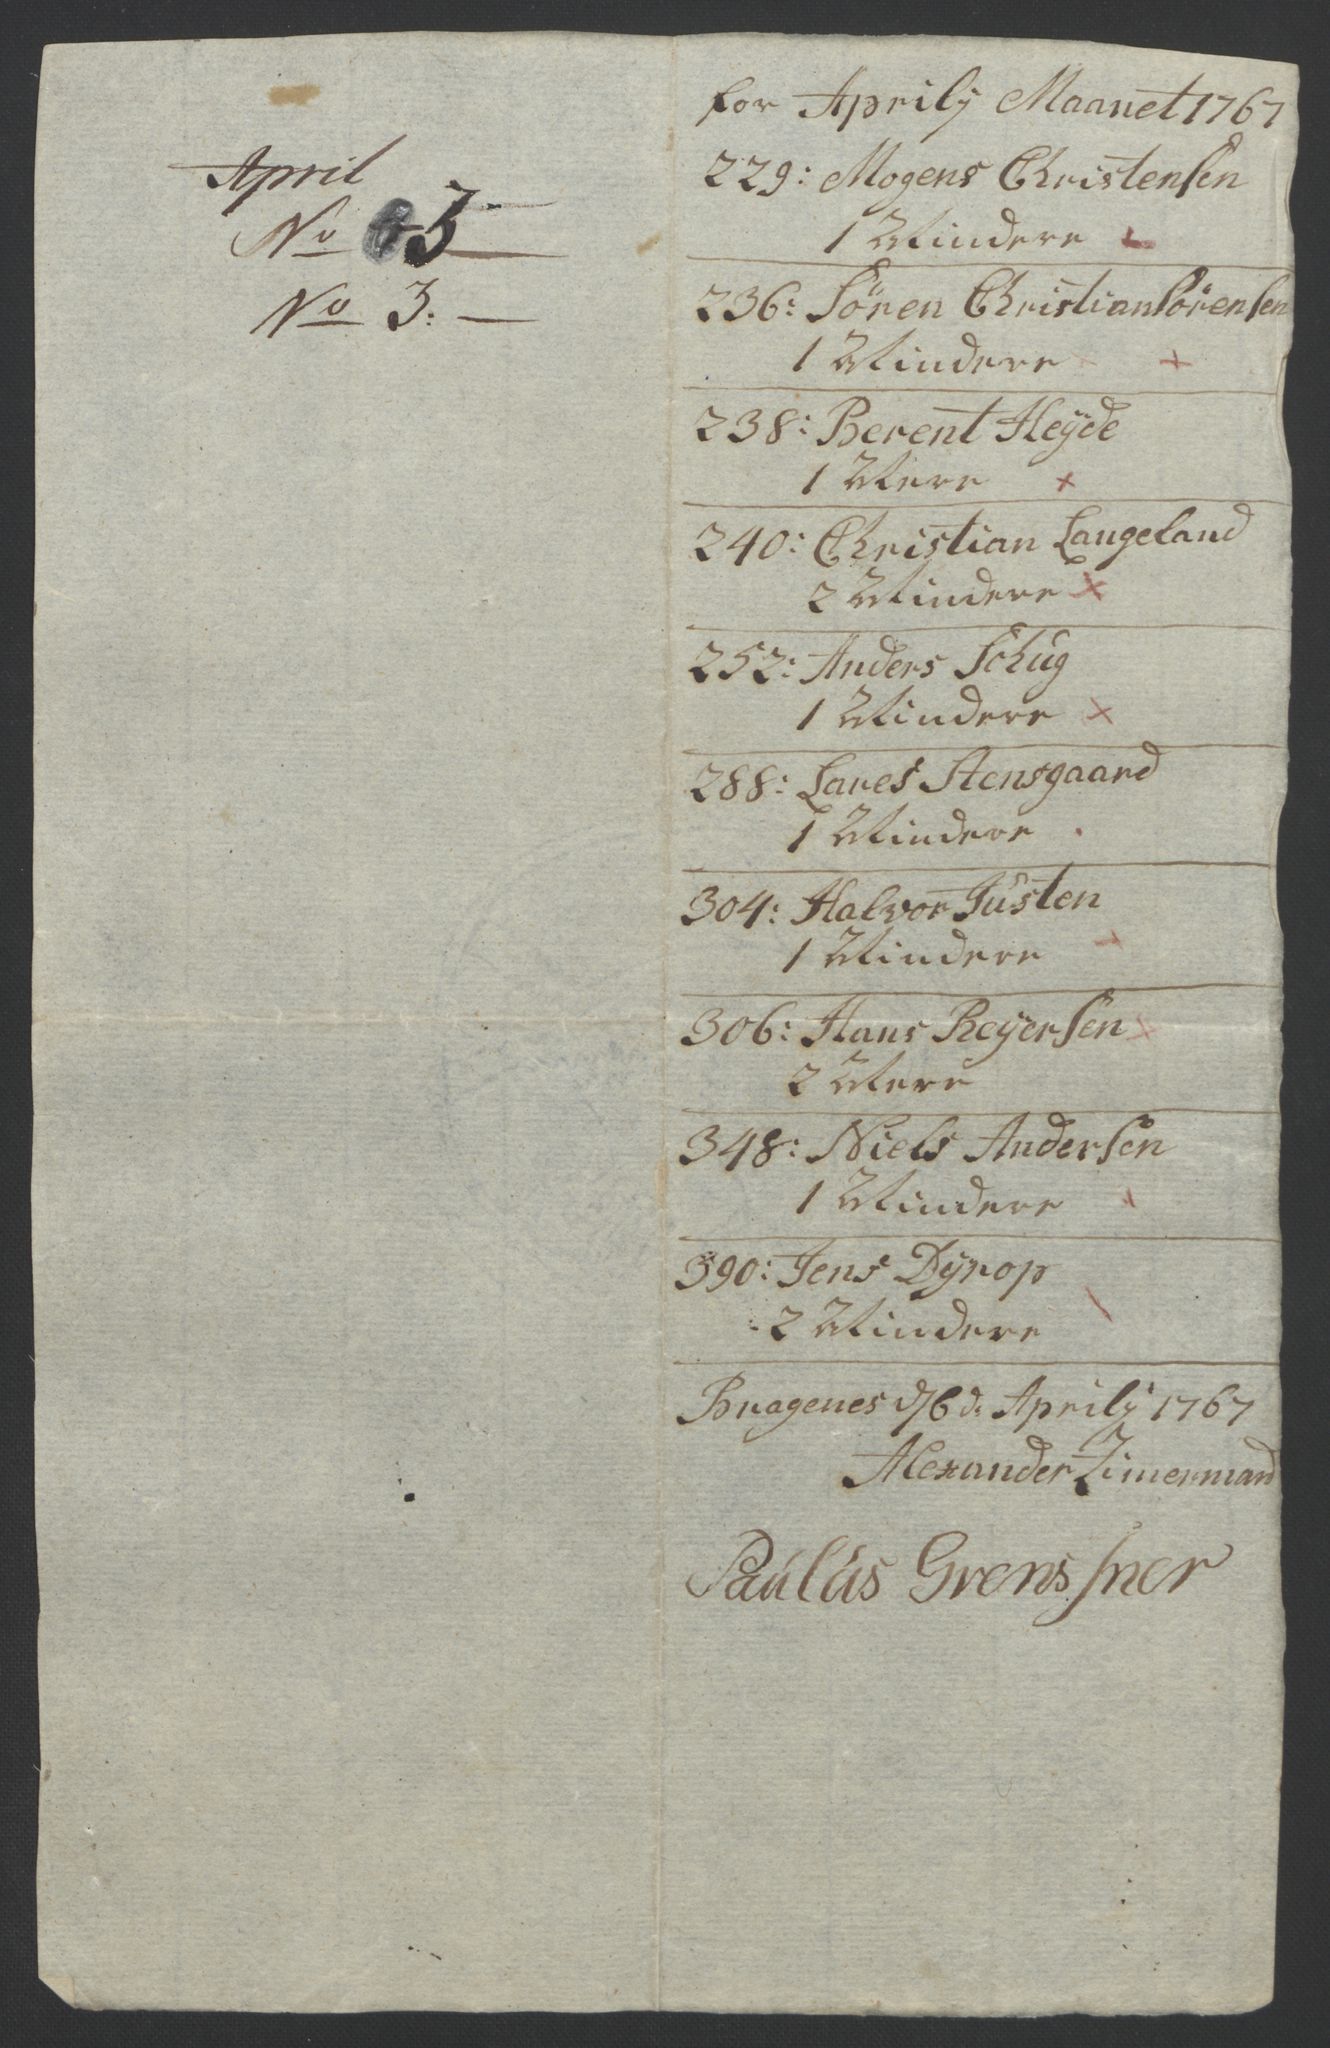 April
No 3
No 3: —
for Aprilj Maanet 1767
229: Mogens Christensen
1 Mindere
236: Sören Christian Sörensen
1 Mindere
238: Berent Heÿde
1 Mere
240: Christian Langeland
2 Mindere
252: Anders Schug
1 Mindere
288: Lares Stensgaard
1 Mindere
304: Halvor Justen
1 Mindere
306: Hans Reÿersen
2 Mere
348: Niels Andersen
1 Mindere
390: Jens Dÿrop
2 Mindere
Bragenes d 6 d: Aprilj 1767
Alexander Zimermand
Paulus Grensner